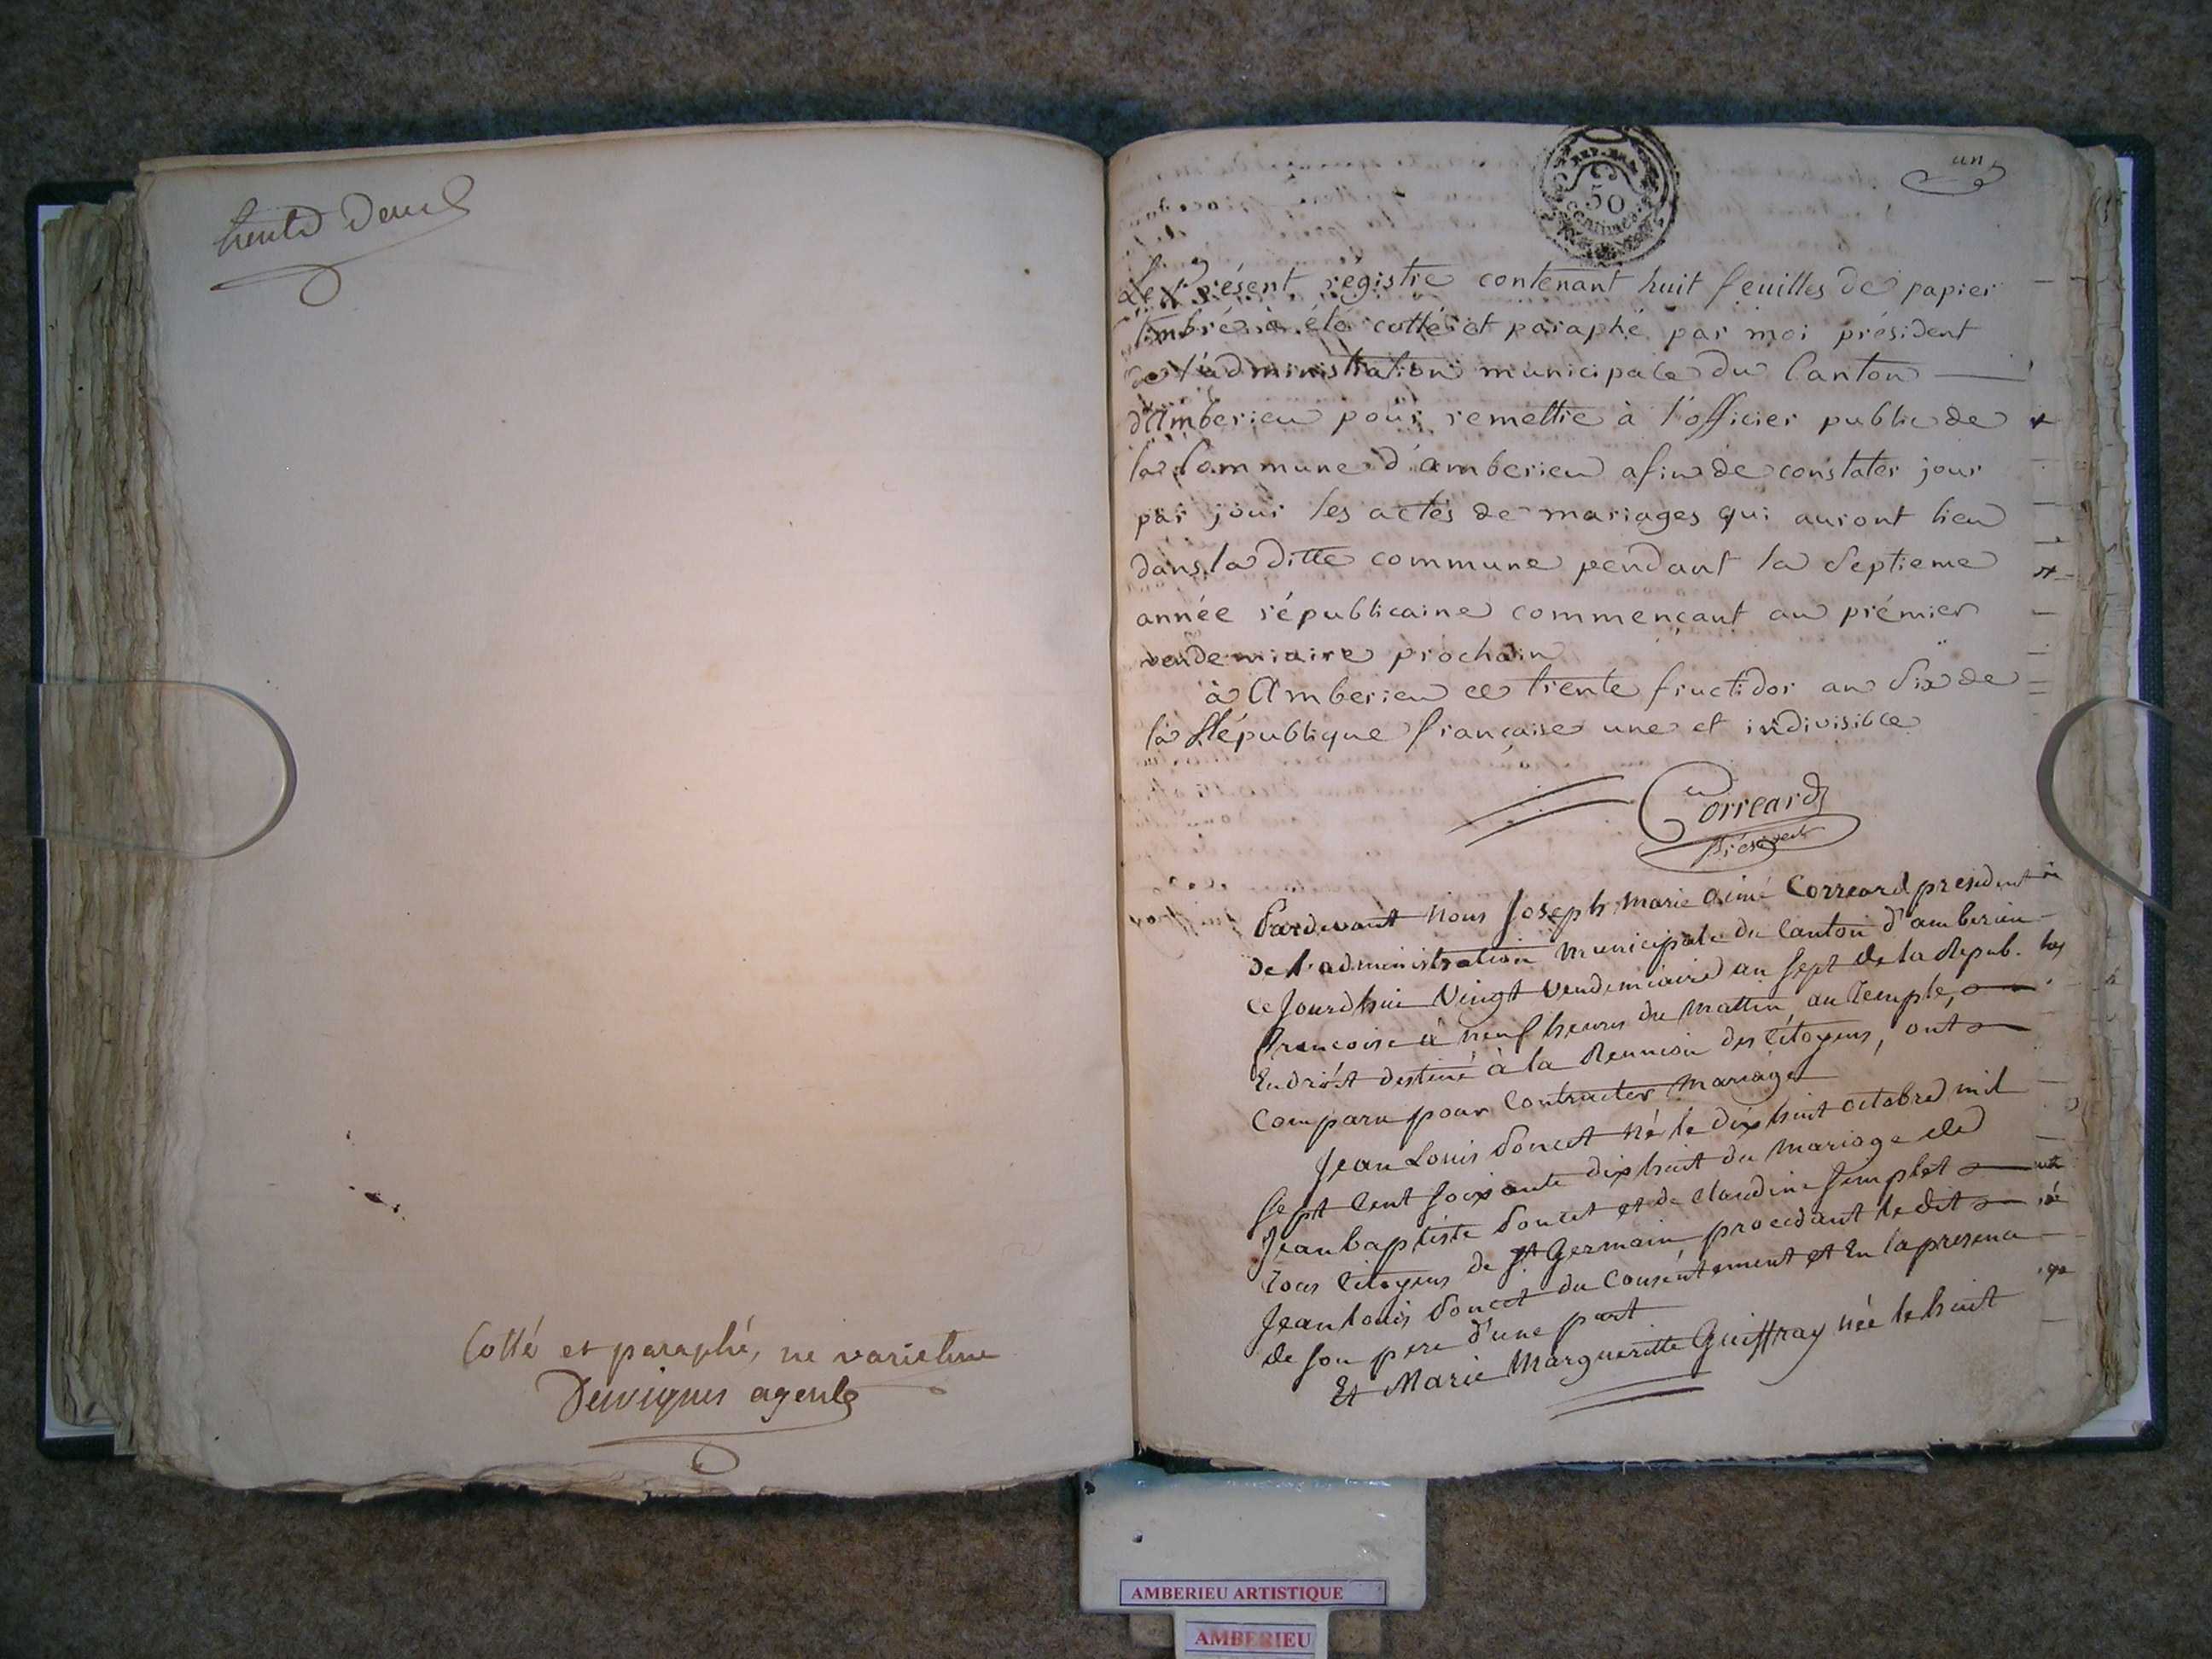 trente deux
Cotté et paraphé, ne varietur
Dervignes agent
un
REP. FRA.
50
Centimes
Le Présent régistre contenant huit feuilles de papier
timbré a été cotté et paraphé par moi président
de l'administration municipale du Canton
d'Amberieu pour remettre à l'officier public de
la Commune d'amberieu afin de constater jour
par jour les actes de mariages qui auront lieu
dans la ditte commune pendant la Septieme
année républicaine commençant au prémier
vendemiaire prochain
à Amberieu ce trente fructidor an Six de
la République française une et indivisible
Correard
Président
Pardevant nous Joseph Marie Aimé Correard president
de l'administration municipale du Canton d'amberieu
ce Jourdhui Vingt Vendemiaire an Sept de la Repub.
francoise à neuf heures du Mattin au Temple,
Endroit destiné à la Reunion des Citoyens, ont
Comparu pour Contracter Mariage
Jean Louis Poncet Né le dix huit octobre mil
Sept Cent Soixante dix huit du Mariage de
Jean baptiste Poncet et de Claudine Simplet
Tous Citoyens de St Germain, procedant le dit
Jean Louis Poncet du Consentement et En la presence
de son pere d'une part
Et Marie Marguerite Guiffray née le huit
AMBERIEU ARTISTIQUE
AMBERIEU